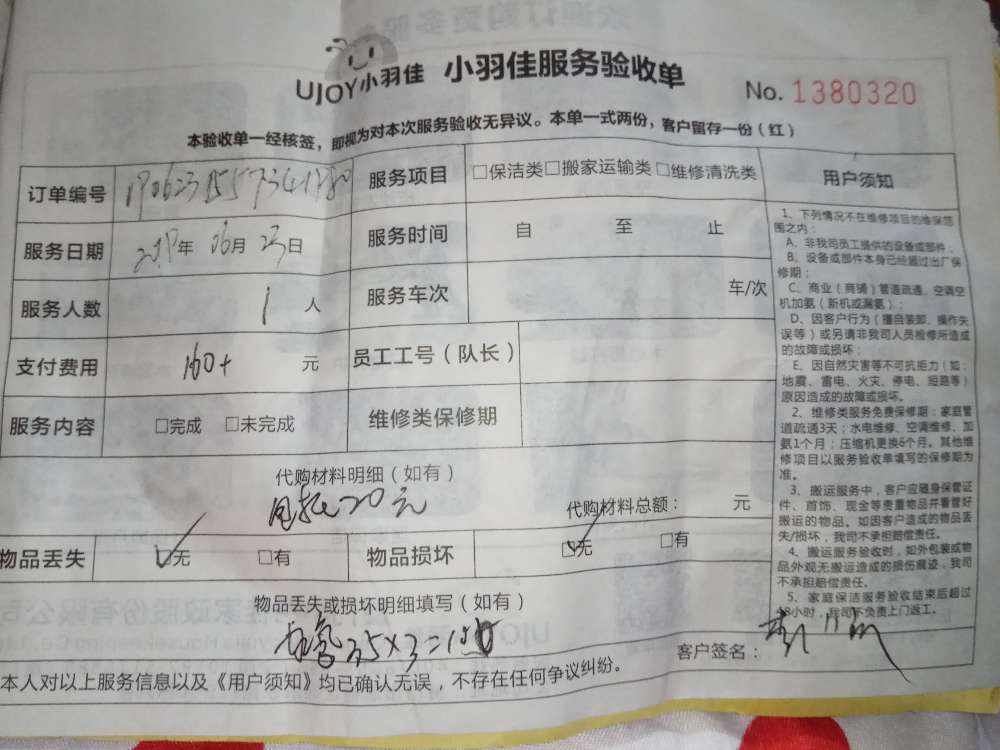 UJOY小羽佳 小羽佳服务验收单
No. 1380320
本验收单一经核签，即视为对本次服务验收无异议。本单一式两份，客户留存一份（红）
订单编号 服务项目 □保洁类 □搬家运输类 □维修清洗类
服务日期 年 06月 23日 服务时间 自 至 止
服务人数 1 人 服务车次 车/次
支付费用 160+ 元 员工工号（队长）
服务内容 □完成 □未完成 维修类保修期
代购材料明细（如有）
20元
代购材料总额： 元
物品丢失 □无 □有 物品损坏 □无 □有
物品丢失或损坏明细填写（如有）
35×3=
客户签名：
本人对以上服务信息以及《用户须知》均已确认无误，不存在任何争议纠纷。
用户须知
1、下列情况不在维修项目的维保范
围之内：
A、非我司员工提供的设备或部件；
B、设备或部件本身已经超过出厂保
修期；
C、商业（商铺）管道疏通、空调空
机加氨（新机或漏氨）；
D、因客户行为（擅自装卸、操作失
误等）或另请非我司人员检修所造成
的故障或损坏；
E、因自然灾害等不可抗拒力（如：
地震、雷电、火灾、停电、短路等）
原因造成的故障或损坏。
2、维修类服务免费保修期：家庭管
道疏通3天；水电维修、空调维修、加
氨1个月；压缩机更换6个月。其他维
修项目以服务验收单填写的保修期为
准。
3、搬运服务中，客户应随身保管证
件、首饰、现金等贵重物品并看管好
搬运的物品。如因客户造成的物品丢
失/损坏，我司不承担赔偿责任。
4、搬运服务验收时，如外包装或物
品外观无搬运造成的损伤痕迹，我司
不承担赔偿责任。
5、家庭保洁服务验收结束后超过
48小时，我司不负责上门返工。